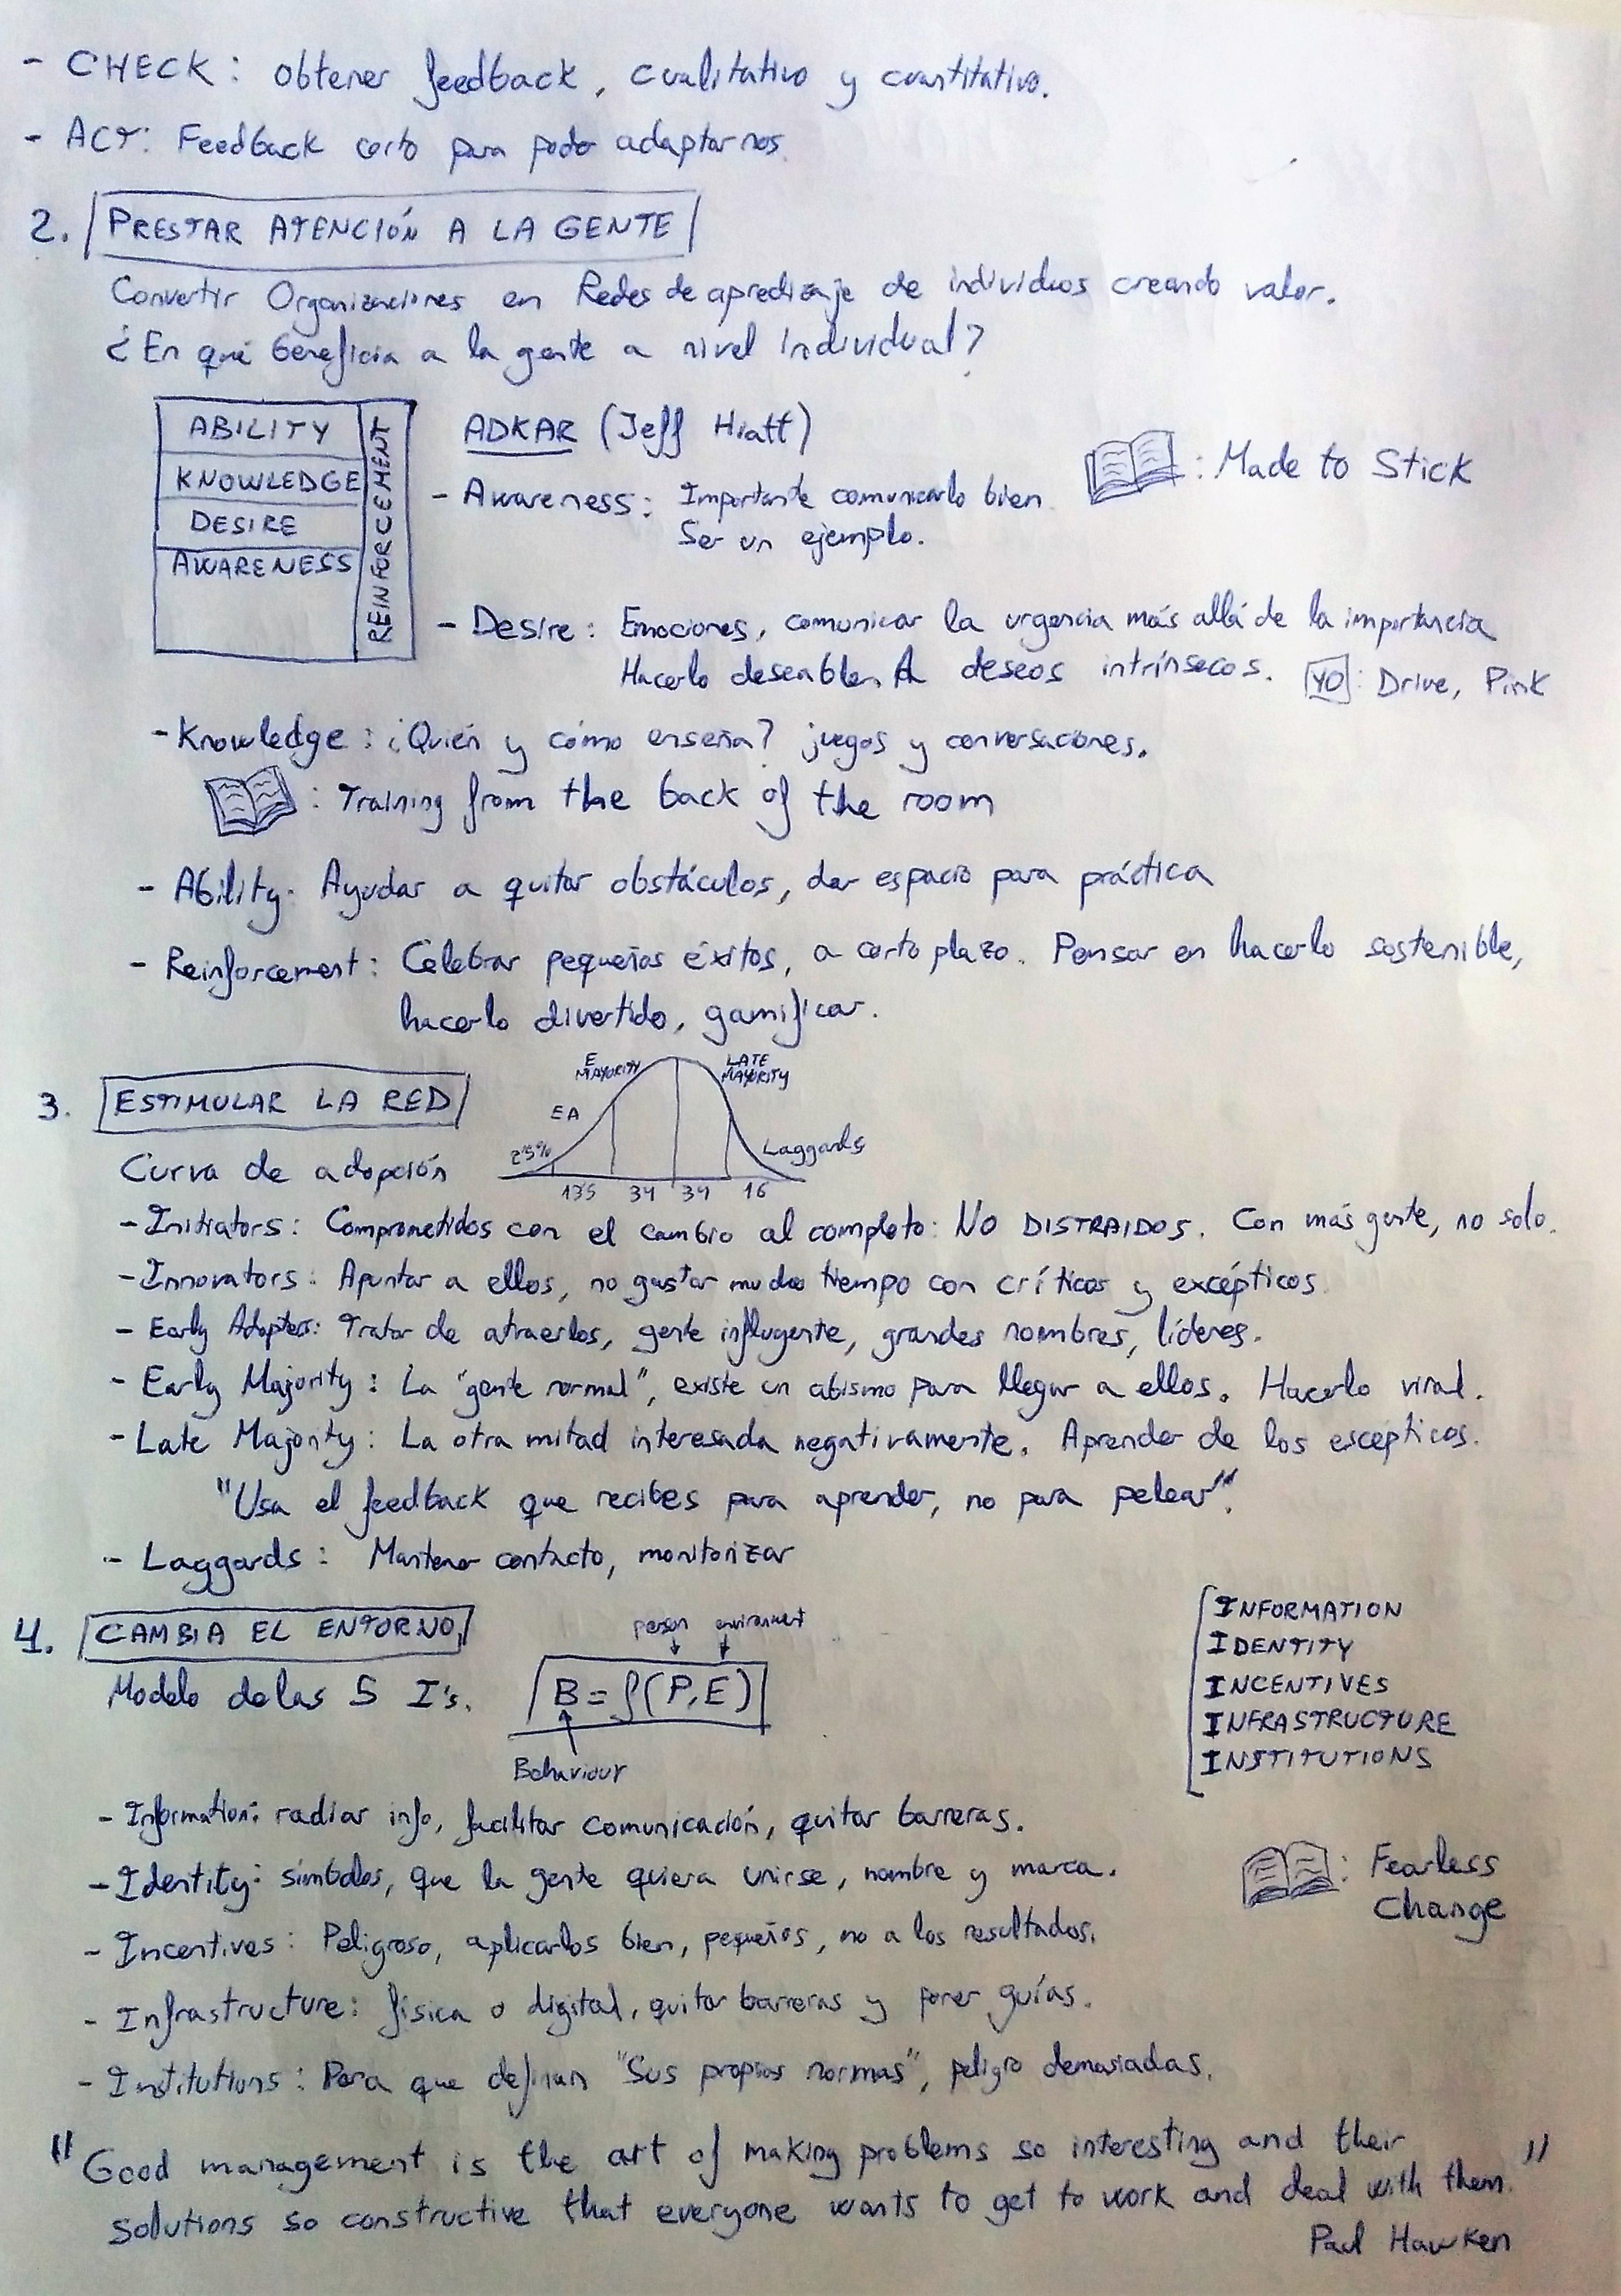 - CHECK: obtener feedback, cualitativo y cuantitativo.
- ACT: Feedback corto para poder adaptarnos.
2. PRESTAR ATENCIÓN A LA GENTE
Convertir Organizaciones en Redes de apredizaje de individuos creando valor.
¿En qué beneficia a la gente a nivel individual?
ABILITY
KNOWLEDGE
DESIRE
AWARENESS
REINFORCEMENT
ADKAR (Jeff Hiatt)
- Awareness: Importante comunicarlo bien
: Made to Stick
Ser un ejemplo.
- Desire: Emociones, comunicar la urgencia más allá de la importancia
Hacerlo deseable. A deseos intrínsecos. YO: Drive, Pink
- Knowledge: ¿Quién y cómo enseña? juegos y conversaciones.
: Training from the back of the room
- Ability. Ayudar a quitar obstáculos, dar espacio para práctica
- Reinforcement: Celebrar pequeños éxitos, a corto plazo. Pensar en hacerlo sostenible,
hacerlo divertido, gamificar.
3. ESTIMULAR LA RED
E MAYORITY
LATE MAYORITY
EA
2'5%
Laggards
13'5 34 34 16
Curva de adopción
- Initiators: Comprometidos con el cambio al completo: NO DISTRAIDOS. Con más gente, no solo.
- Innovators: Apuntar a ellos, no gastar mucho tiempo con críticos y excépticos
- Early Adopters: Tratar de atraerlos, gente influyente, grandes nombres, líderes.
- Early Majority: La "gente normal", existe un abismo para llegar a ellos. Hacerlo viral.
- Late Majority: La otra mitad interesada negativamente. Aprender de los escepticos.
"Usa el feedback que recibes para aprender, no para pelear".
- Laggards: Mantener contacto, monitorizar
4. CAMBIA EL ENTORNO
Modelo de las 5 I's.
person environment
B = f(P,E)
Behaviour
INFORMATION
IDENTITY
INCENTIVES
INFRASTRUCTURE
INSTITUTIONS
- Information: radiar info, facilitar comunicación, quitar barreras.
- Identity: símbolos, que la gente quiera unirse, nombre y marca.
: Fearless
Change
- Incentives: Peligroso, aplicarlos bien, pequeños, no a los resultados.
- Infrastructure: física o digital, quitar barreras y poner guías.
- Institutions: Para que definan "Sus propias normas", peligro demasiadas.
"Good management is the art of making problems so interesting and their
solutions so constructive that everyone wants to get to work and deal with them."
Paul Hawken